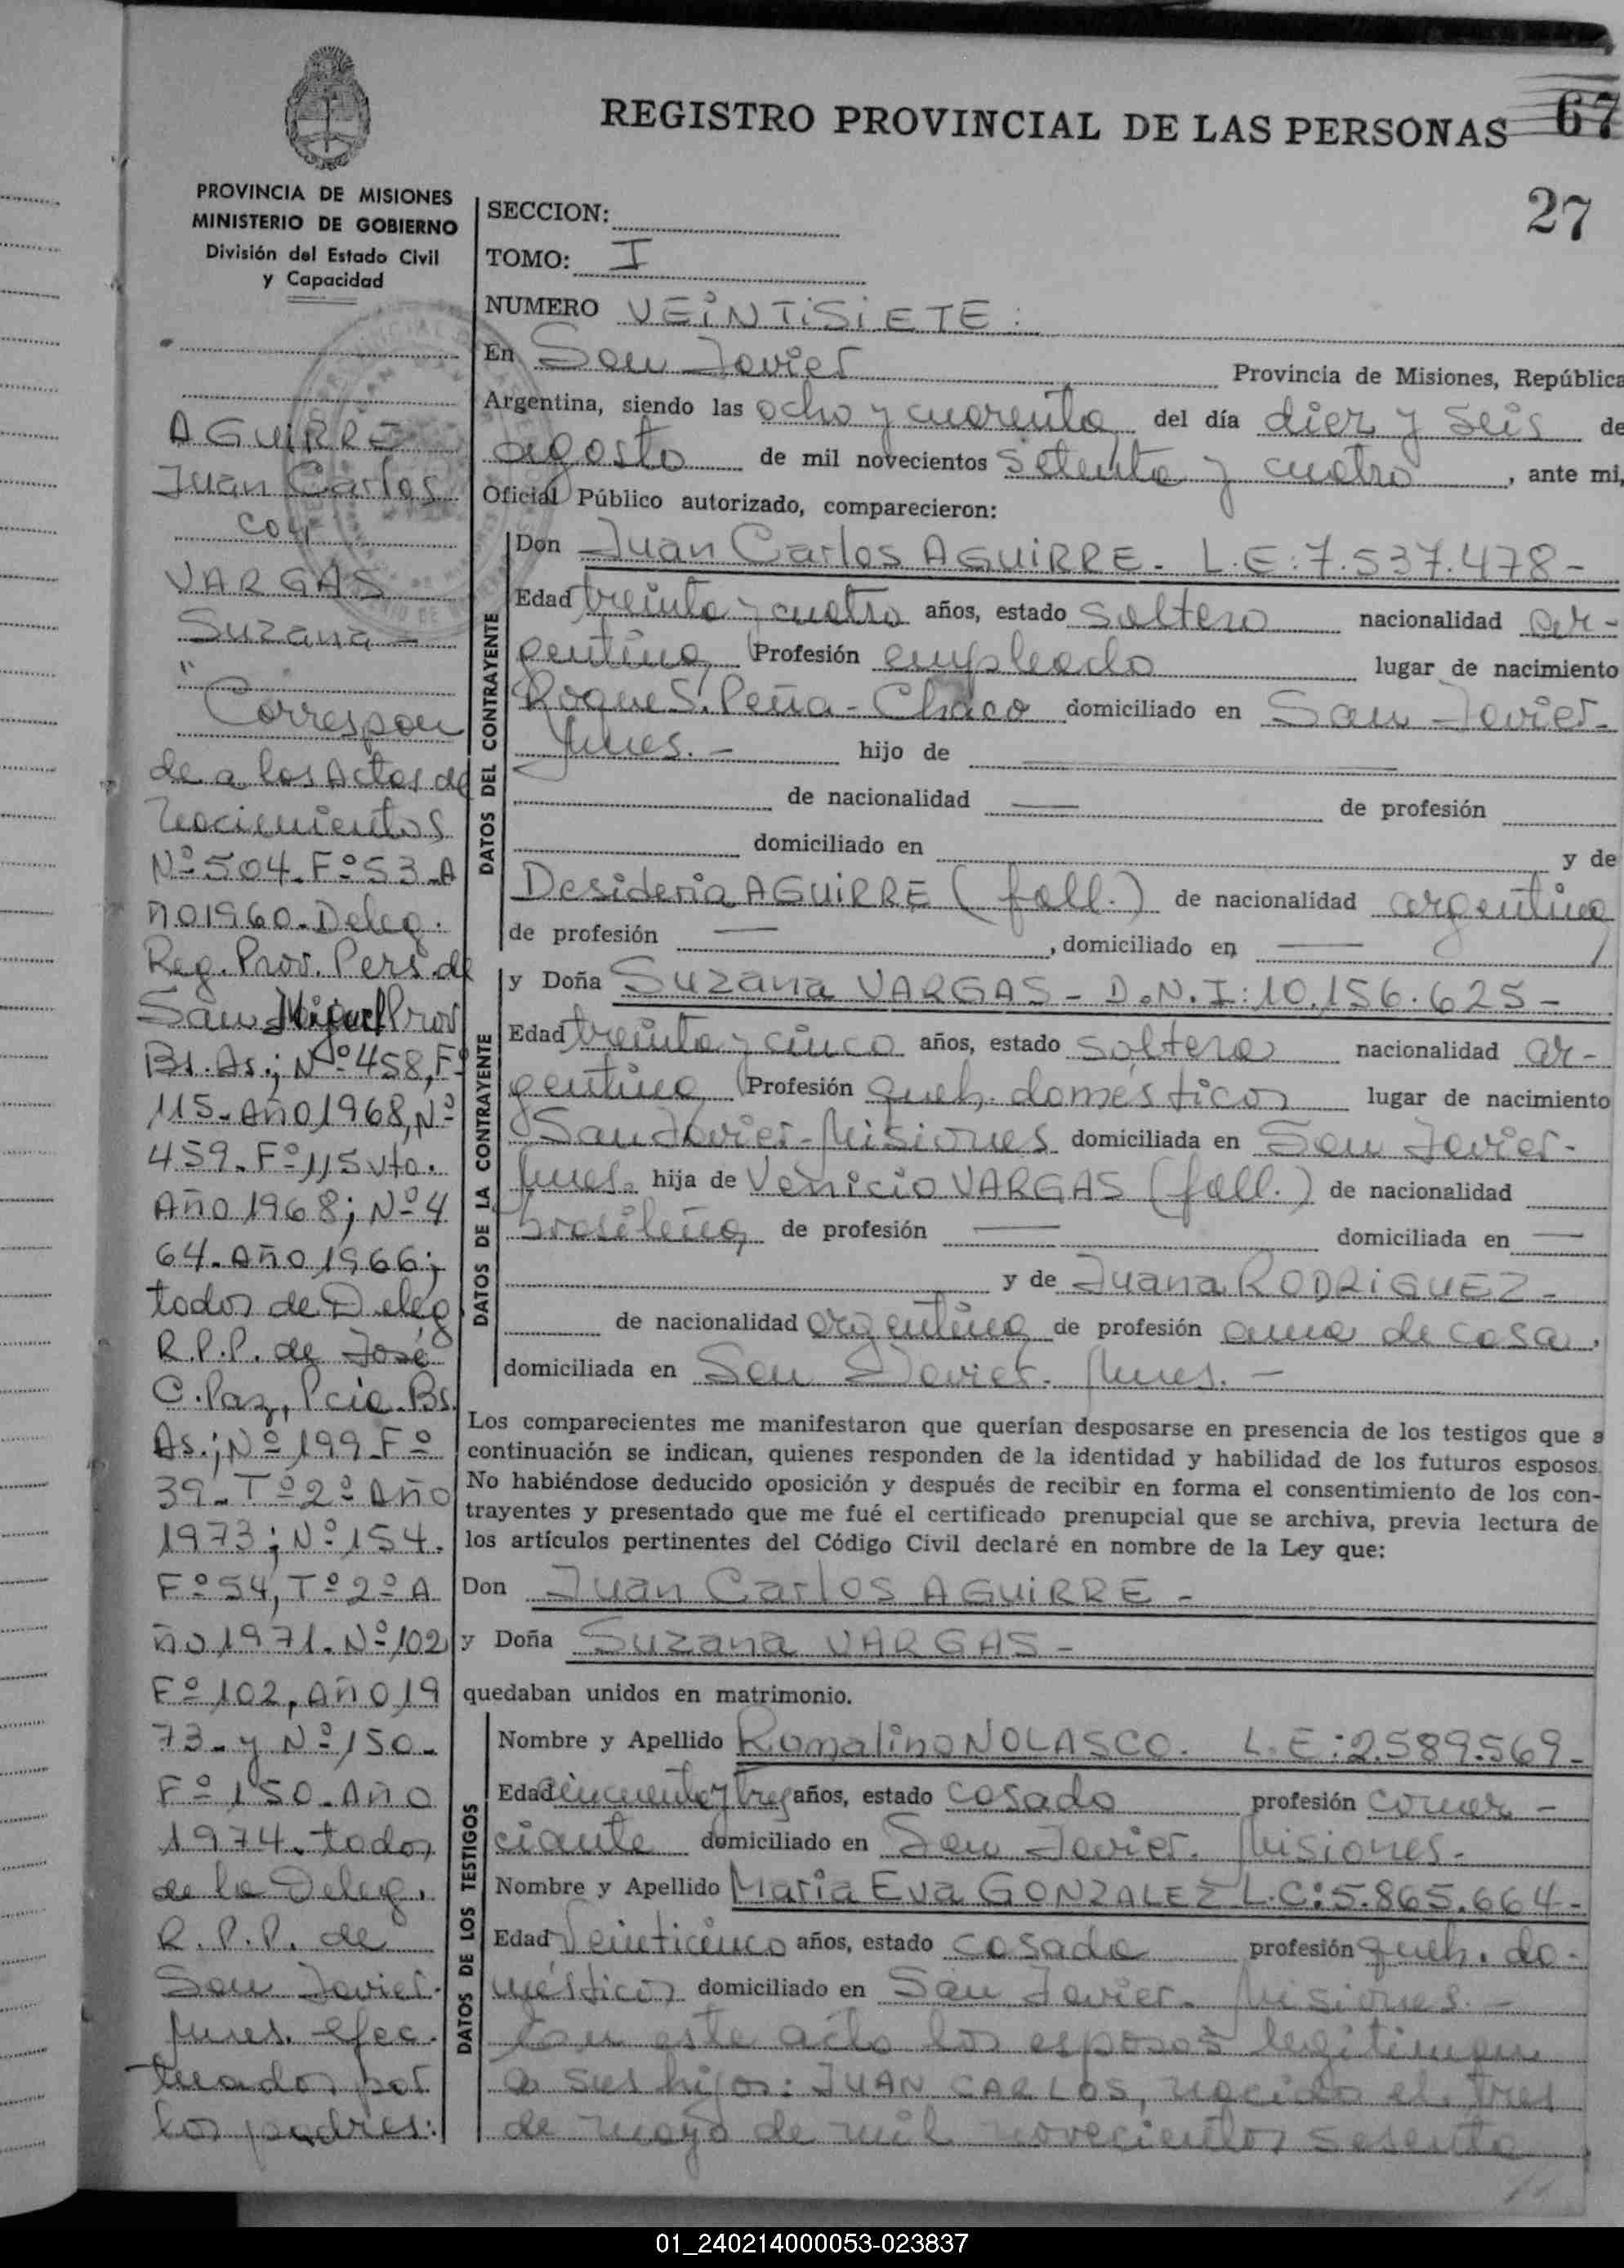 REGISTRO PROVINCIAL DE LAS PERSONAS 67
27
PROVINCIA DE MISIONES
MINISTERIO DE GOBIERNO
División del Estado Civil
y Capacidad
AGUIRRE
Juan Carlos
con
VARGAS
Suzana -
"Correspon
de a los Actos de
Nacimientos
Nº 504. Fº 53. A
ño 1960. Deleg.
Reg. Prov. Pers. de
San Miguel Prov
Bs. As.; Nº 458, Fº
115. Año 1968, Nº
459. Fº 115 vto.
Año 1968; Nº 4
64. Año 1966;
todos de Deleg
R.P.P. de José
C. Paz, Pcia. Bs.
As.; Nº 199 Fº
39. Tº 2º Año
1973; Nº 154.
Fº 54, Tº 2º A
ño 1971. Nº 102
Fº 102, Año 19
73. y Nº 150.
Fº 150. Año
1974. todos
de la Deleg.
R.P.P. de
San Javier.
Mnes. efec.
tuados por
los padres:
SECCION:
TOMO: I
NUMERO VEINTISIETE:
En San Javier Provincia de Misiones, República
Argentina, siendo las ocho y cuarenta del día diez y seis de
agosto de mil novecientos setenta y cuatro, ante mi,
Oficial Público autorizado, comparecieron:
DATOS DEL CONTRAYENTE
Don Juan Carlos AGUIRRE. L.E: 7.537.478 -
Edad treinta y cuatro años, estado soltero nacionalidad ar-
gentina Profesión empleado lugar de nacimiento
Roque S. Peña - Chaco domiciliado en San Javier.
Mnes. - hijo de
de nacionalidad — de profesión
domiciliado en y de
Desideria AGUIRRE (fall.) de nacionalidad argentina
de profesión — , domiciliado en —
DATOS DE LA CONTRAYENTE
y Doña Suzana VARGAS - D.N.I: 10.156.625 -
Edad treinta y cinco años, estado soltera nacionalidad ar-
gentina Profesión queh. domésticos lugar de nacimiento
San Javier - Misiones domiciliada en San Javier -
Mnes. hija de Venicio VARGAS (fall.) de nacionalidad
brasileña de profesión — domiciliada en —
y de Juana RODRIGUEZ -
de nacionalidad argentina de profesión ama de casa.
domiciliada en San Javier. Mnes. -
Los comparecientes me manifestaron que querían desposarse en presencia de los testigos que a
continuación se indican, quienes responden de la identidad y habilidad de los futuros esposos.
No habiéndose deducido oposición y después de recibir en forma el consentimiento de los con-
trayentes y presentado que me fué el certificado prenupcial que se archiva, previa lectura de
los artículos pertinentes del Código Civil declaré en nombre de la Ley que:
Don Juan Carlos AGUIRRE -
y Doña Suzana VARGAS -
quedaban unidos en matrimonio.
DATOS DE LOS TESTIGOS
Nombre y Apellido Romalino NOLASCO. L.E: 2.589.569 -
Edad cincuenta y tres años, estado casado profesión comer -
ciante domiciliado en San Javier. Misiones.
Nombre y Apellido Maria Eva GONZALEZ L.C: 5.865.664 -
Edad Veinticinco años, estado casada profesión queh. do -
mésticos domiciliado en San Javier. Misiones. -
En este acto los esposos legitiman
a sus hijos: JUAN CARLOS, nacido el tres
de mayo de mil novecientos sesenta
01_240214000053-023837